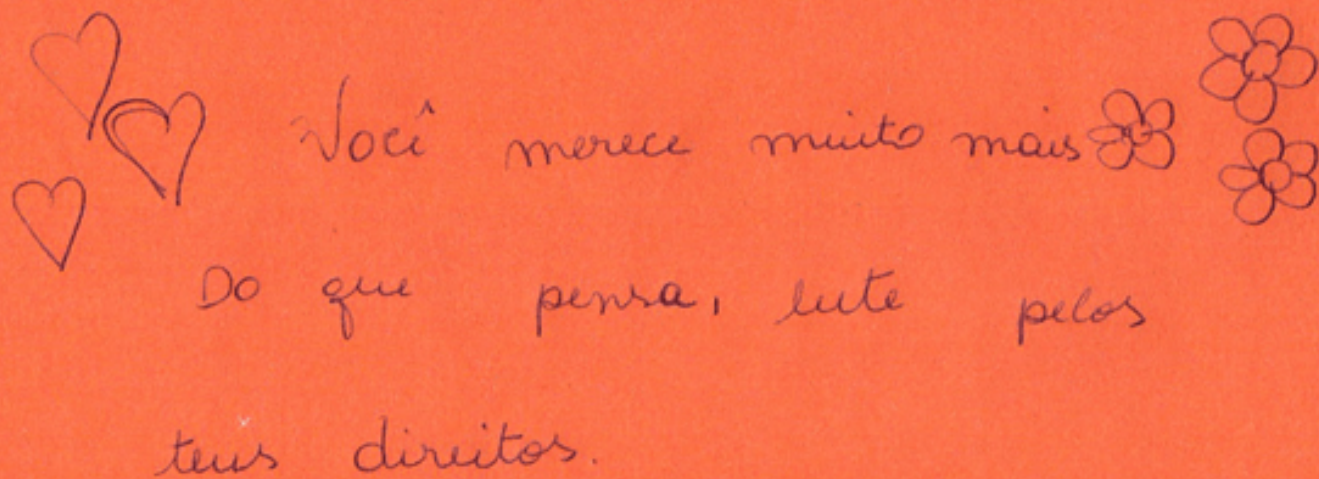 Você merece muito mais
Do que pensa, lute pelos
teus direitos.